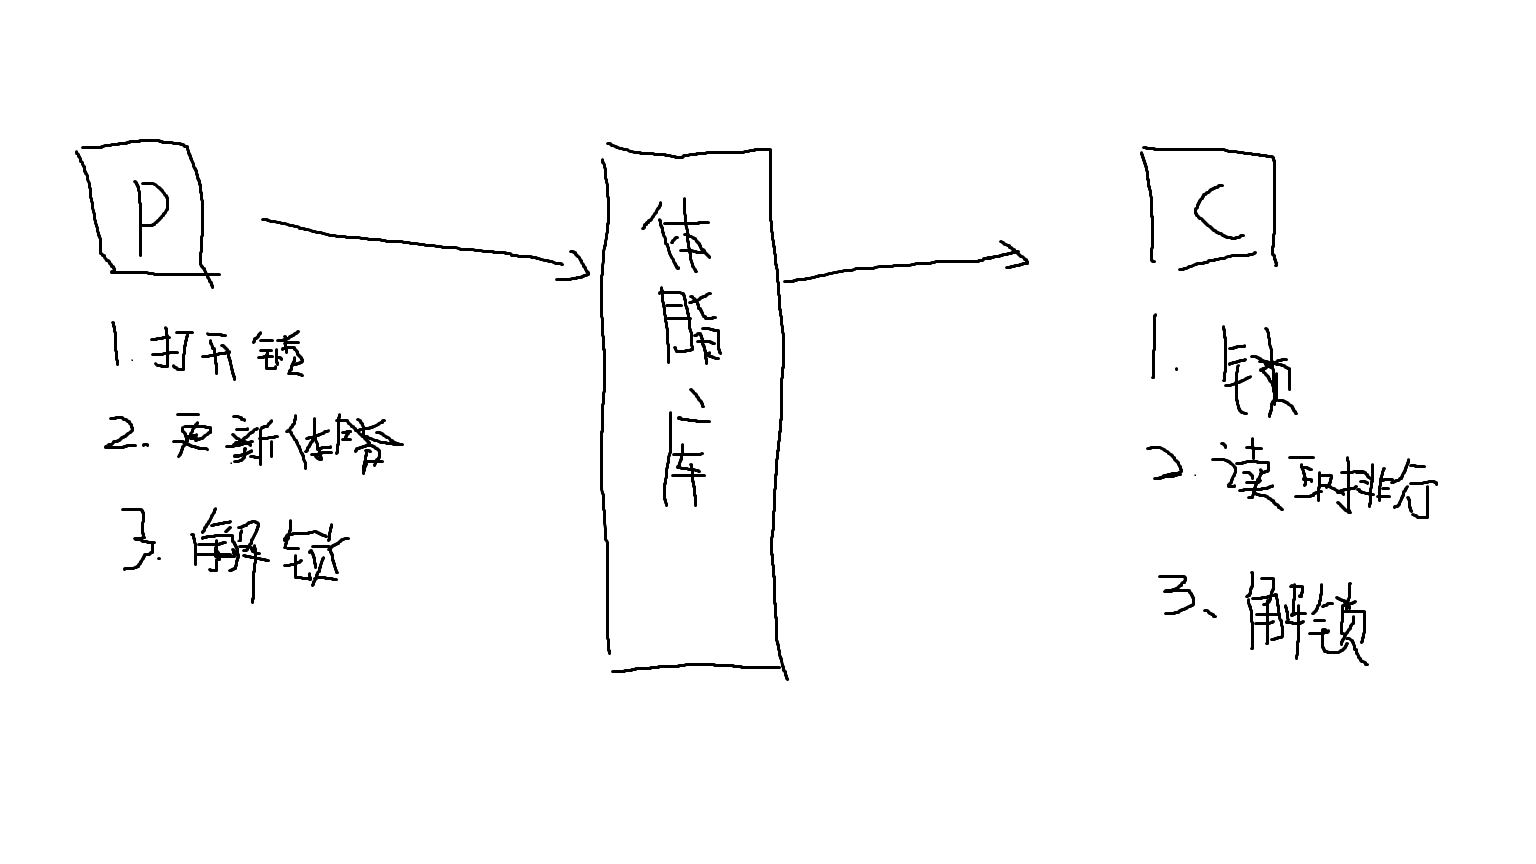 P
1. 打开锁
2. 更新体脂
3. 解锁
体脂库
C
1. 锁
2. 读取排行
3、解锁